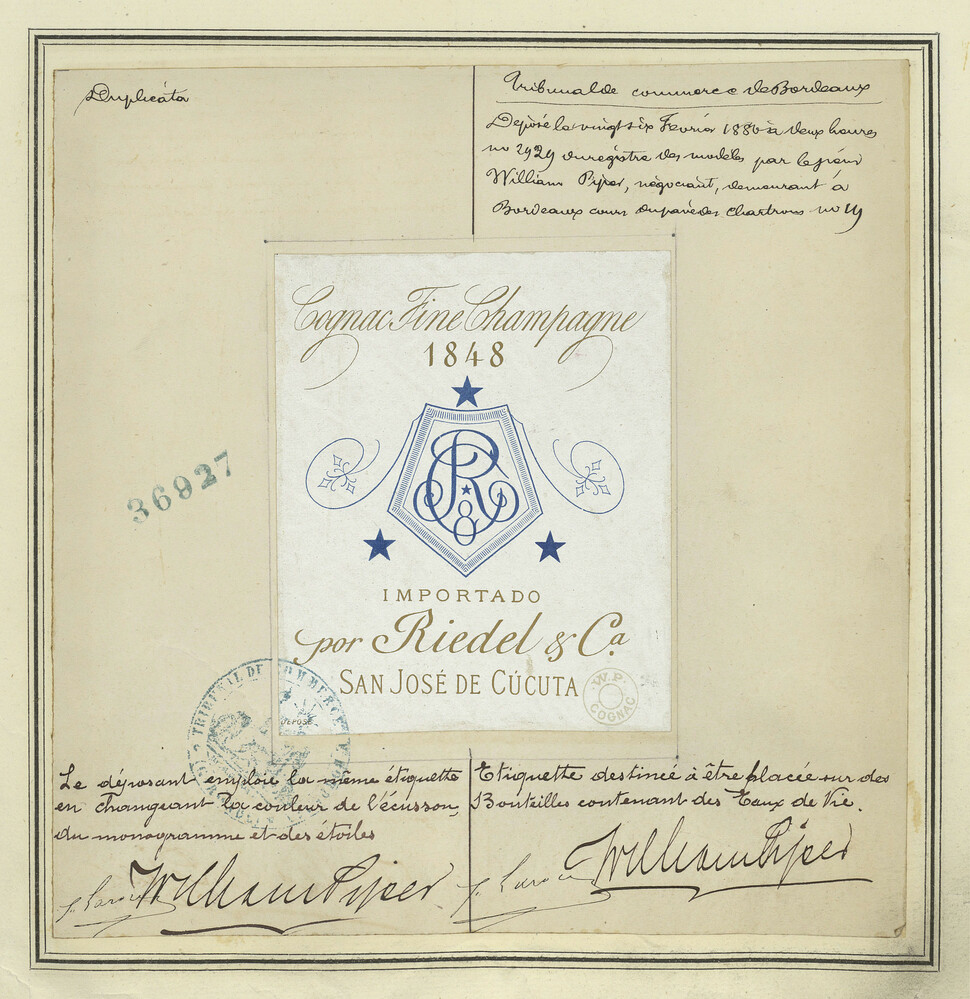 Duplicata
Tribunal de commerce de Bordeaux
Déposé le vingt six Février 1886 à deux heures
no 2929 du registre des modèles par le sieur
William Pijper, négociant, demeurant à
Bordeaux cours du pavé des Chartrons no 19
36927
Cognac Fine Champagne
1848
RC
IMPORTADO
por Riedel & Ca.
SAN JOSÉ DE CÚCUTA
W.P.
COGNAC
DÉPOSÉ
TRIBUNAL DE COMMERCE
Le déposant emploie la même étiquette
en changeant la couleur de l'écusson,
du monogramme et des étoiles
Etiquette destinée à être placée sur des
Bouteilles contenant des Eaux de Vie.
William Pijper
William Pijper